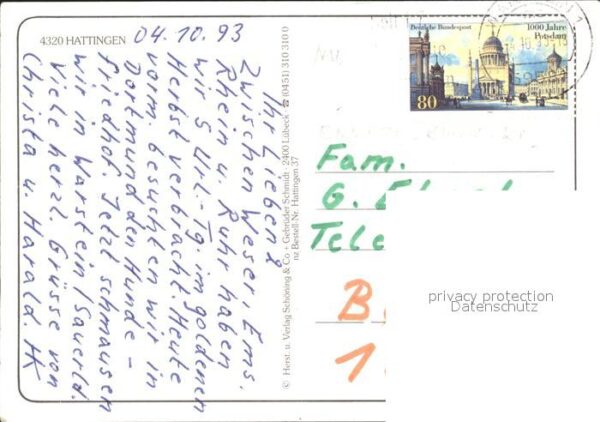 4320 HATTINGEN
04.10.93
Ihr Lieben 2
Zwischen Weser, Ems.
Rhein u. Ruhr haben
wir 5 Url.-Tg. im goldenen
Herbst verbracht. Heute
vorm. besuchten wir in
Dortmund den Hunde-
friedhof. Jetzt schmausen
wir in Warstein/Sauerld.
Viele herzl. Grüsse von
Christa u. Harald.
© Herst. u. Verlag Schöning & Co + Gebrüder Schmidt · 2400 Lübeck · ☎ (0451) 310 310 0
nz Bestell-Nr. Hattingen 37
Deutsche Bundespost
1000 Jahre
Potsdam
80
Fam.
G.
Tele
B
1
privacy protection
Datenschutz